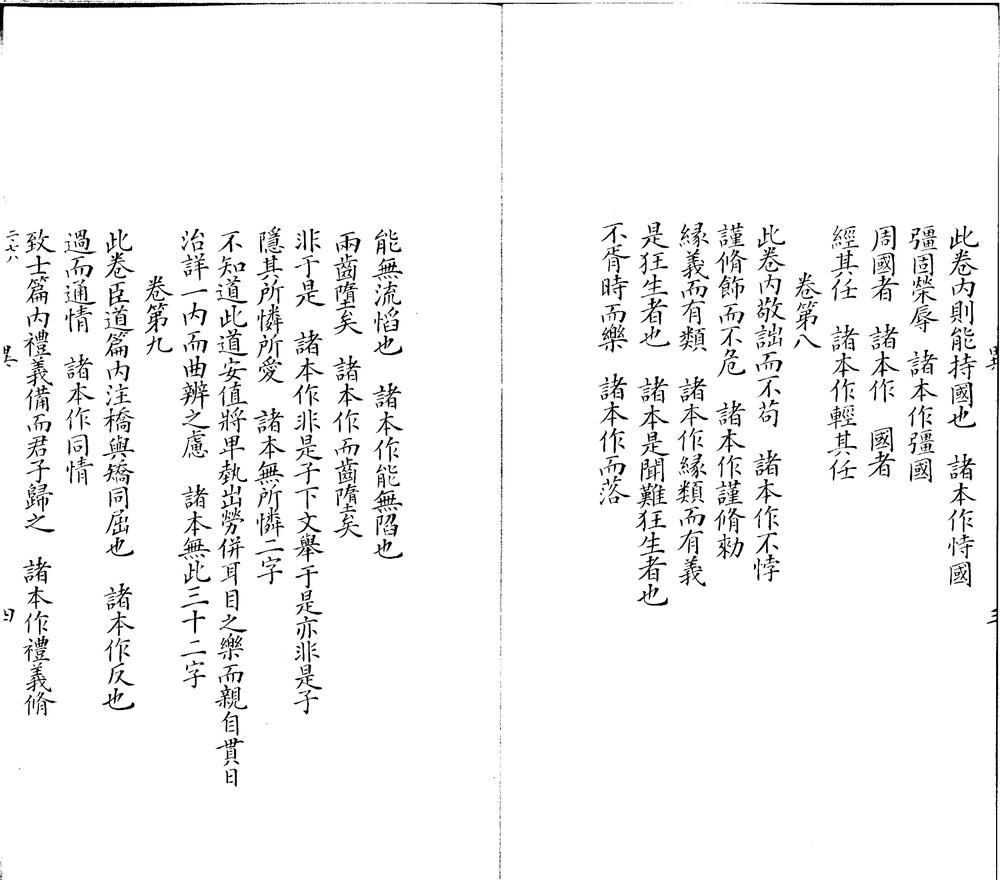 此卷内則能持國也　諸本作恃國
彊固榮辱　諸本作彊國
周國者　諸本作　國者
經其任　諸本作輕其任
卷第八
此卷内敬詘而不苟　諸本作不悖
謹脩飾而不危　諸本作謹脩勑
緣義而有類　諸本作緣類而有義
是狂生者也　諸本是聞難狂生者也
不胥時而樂　諸本作而落
能無流慆也　諸本作能無陷也
兩齒墮矣　諸本作而齒墮矣
非于是　諸本作非是子下文舉于是亦非是子
隱其所憐所愛　諸本無所憐二字
不知道此道安值將卑埶出勞併耳目之樂而親自貫日
治詳一内而曲辨之慮　諸本無此三十二字
卷第九
此卷臣道篇内注橋與矯同屈也　諸本作反也
過而通情　諸本作同情
致士篇内禮義備而君子歸之　諸本作禮義脩